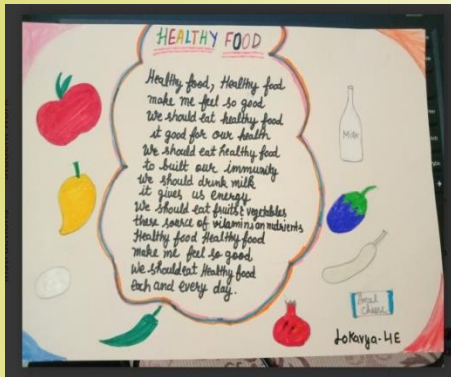 HEALTHY FOOD
Healthy food, Healthy food
make me feel so good
We should eat healthy food
it good for our health
We should eat healthy food
to built our immunity
We should drink milk
it gives us energy
We should eat fruits & vegetables
these source of vitamins on nutrients
Healthy food Healthy food
make me feel so good
We should eat Healthy food
each and every day.
Milk
Amul
Cheese
Lokavya-4E